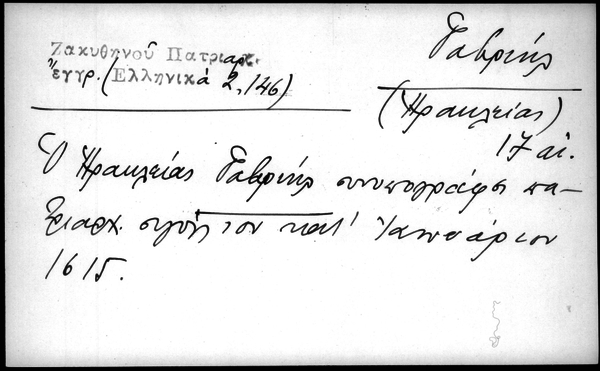 Ζακυθηνοῦ Πατριαρ.
ἔγγρ. (Ἑλληνικά 2,146)
Γαβριήλ
(Ἡρακλείας)
17 αἰ.
Ὁ Ἡρακλείας Γαβριήλ συνυπογράφει πα-
τριαρχ. σιγίλλιον κατ' Ἰαννουάριον
1615.